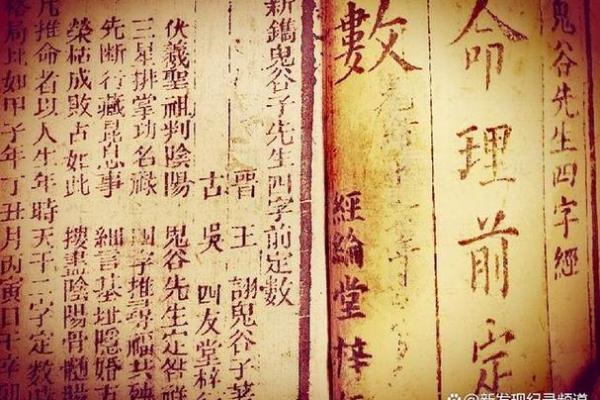 鬼谷先生四字經
命理前定
數
經綸堂梓
新鐫鬼谷子先生四字前定數
晋 王 詡鬼谷子著
古 吳 四友堂梓行
伏羲聖祖判陰陽 鬼谷先生定咎祥
三星排掌功名祿 四字推尋禍福殃
先断行藏息事 細言基址隱婚
榮枯成敗占如此 搜盡陰陽骨髓
凡推命者以人生年時天干二字定數時
格局比如甲子年丁丑月丙寅日辛卯
新发现纪录频道